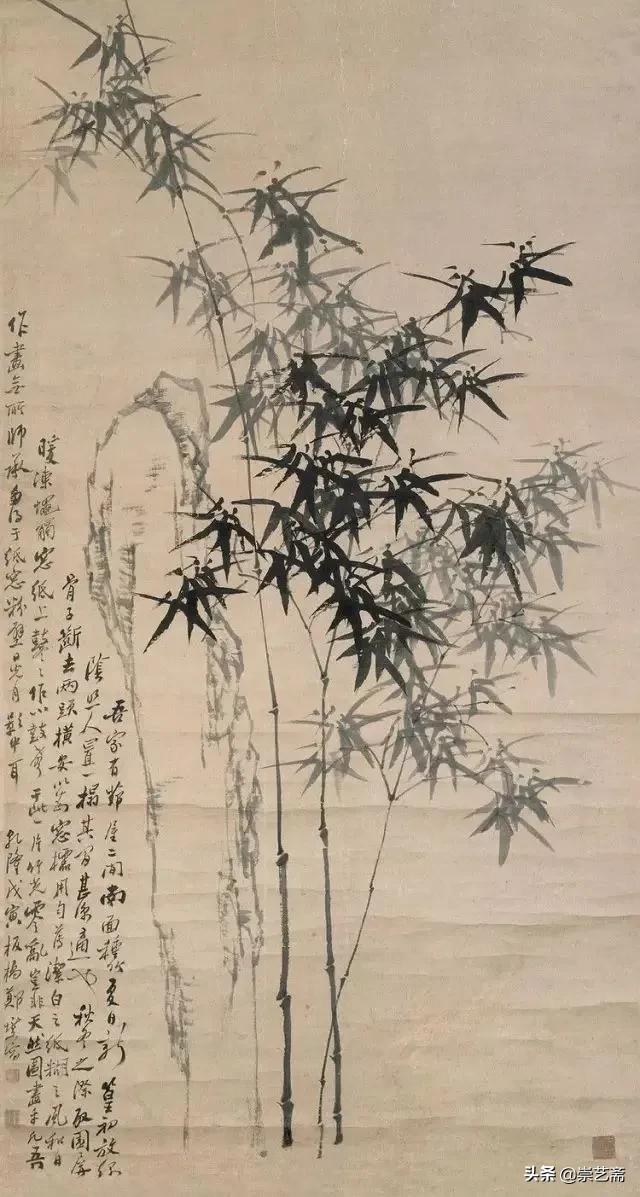 吾家有茆屋二間南面種竹夏日新篁初放綠
陰照人置一榻其中甚涼適也秋冬之際取圍屏
骨子斷去兩頭橫安以為窗櫺用勻薄潔白之紙糊之風和日
暖凍蠅觸窗紙上鼕々作小鼓聲于此一片竹光零亂豈非天然圖畫乎凡吾
作畫無所師承多得于紙窗粉壁日光月影中耳 乾隆戊寅板橋鄭燮
头条 @崇艺斋